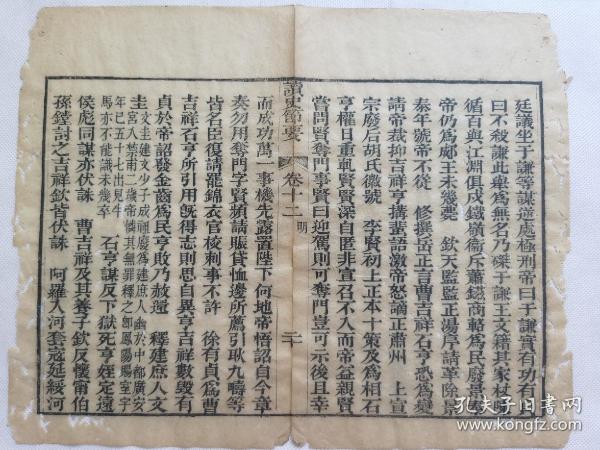 廷議坐于謙等謀逆處極刑帝曰于謙實有功有貞
曰不殺謙此舉為無名乃磔于謙王文籍其家杖
循百與江淵俱戍鐵嶺衛斥蕭鎡商輅為民廢景
帝仍為郕王未幾薨　欽天監監正湯序請革除景
泰年號帝不從　修撰岳正言曹吉祥石亨恣為變
請帝裁抑吉祥亨搆蜚語激帝怒謫正肅州　上宣
宗廢后胡氏徽號　李賢初上正本十策及為相石
亨權日重輒賢賢深自匿非宣召不入而帝益親賢
嘗問賢奪門事賢曰迎駕則可奪門豈可示後且幸
讀史節要
卷十二
明
二十
而成功萬一事機先露置陛下何地帝悟詔自今章
奏勿用奪門字賢頻請賑貸恤邊所薦引耿九疇等
皆名臣復請罷錦衣官校刺事不許　徐有貞為曹
吉祥石亨所引用既得志則思自異亨吉祥數毀有
貞於帝詔發金齒為民亨敗乃赦還　釋建庶人文
圭文圭建文少子成祖廢為建庶人幽於中都廣安
宮入禁甫二歲帝憐其無罪釋之卽鳳陽賜室宇
年已五十七出見牛
馬亦不能識未幾卒
石亨謀反下獄死亨姪定遠
侯彪同謀亦伏誅　曹吉祥及其養子欽反懷甯伯
孫鏜討之吉祥欽皆伏誅　阿羅入河套寇延綏河
孔夫子旧书网